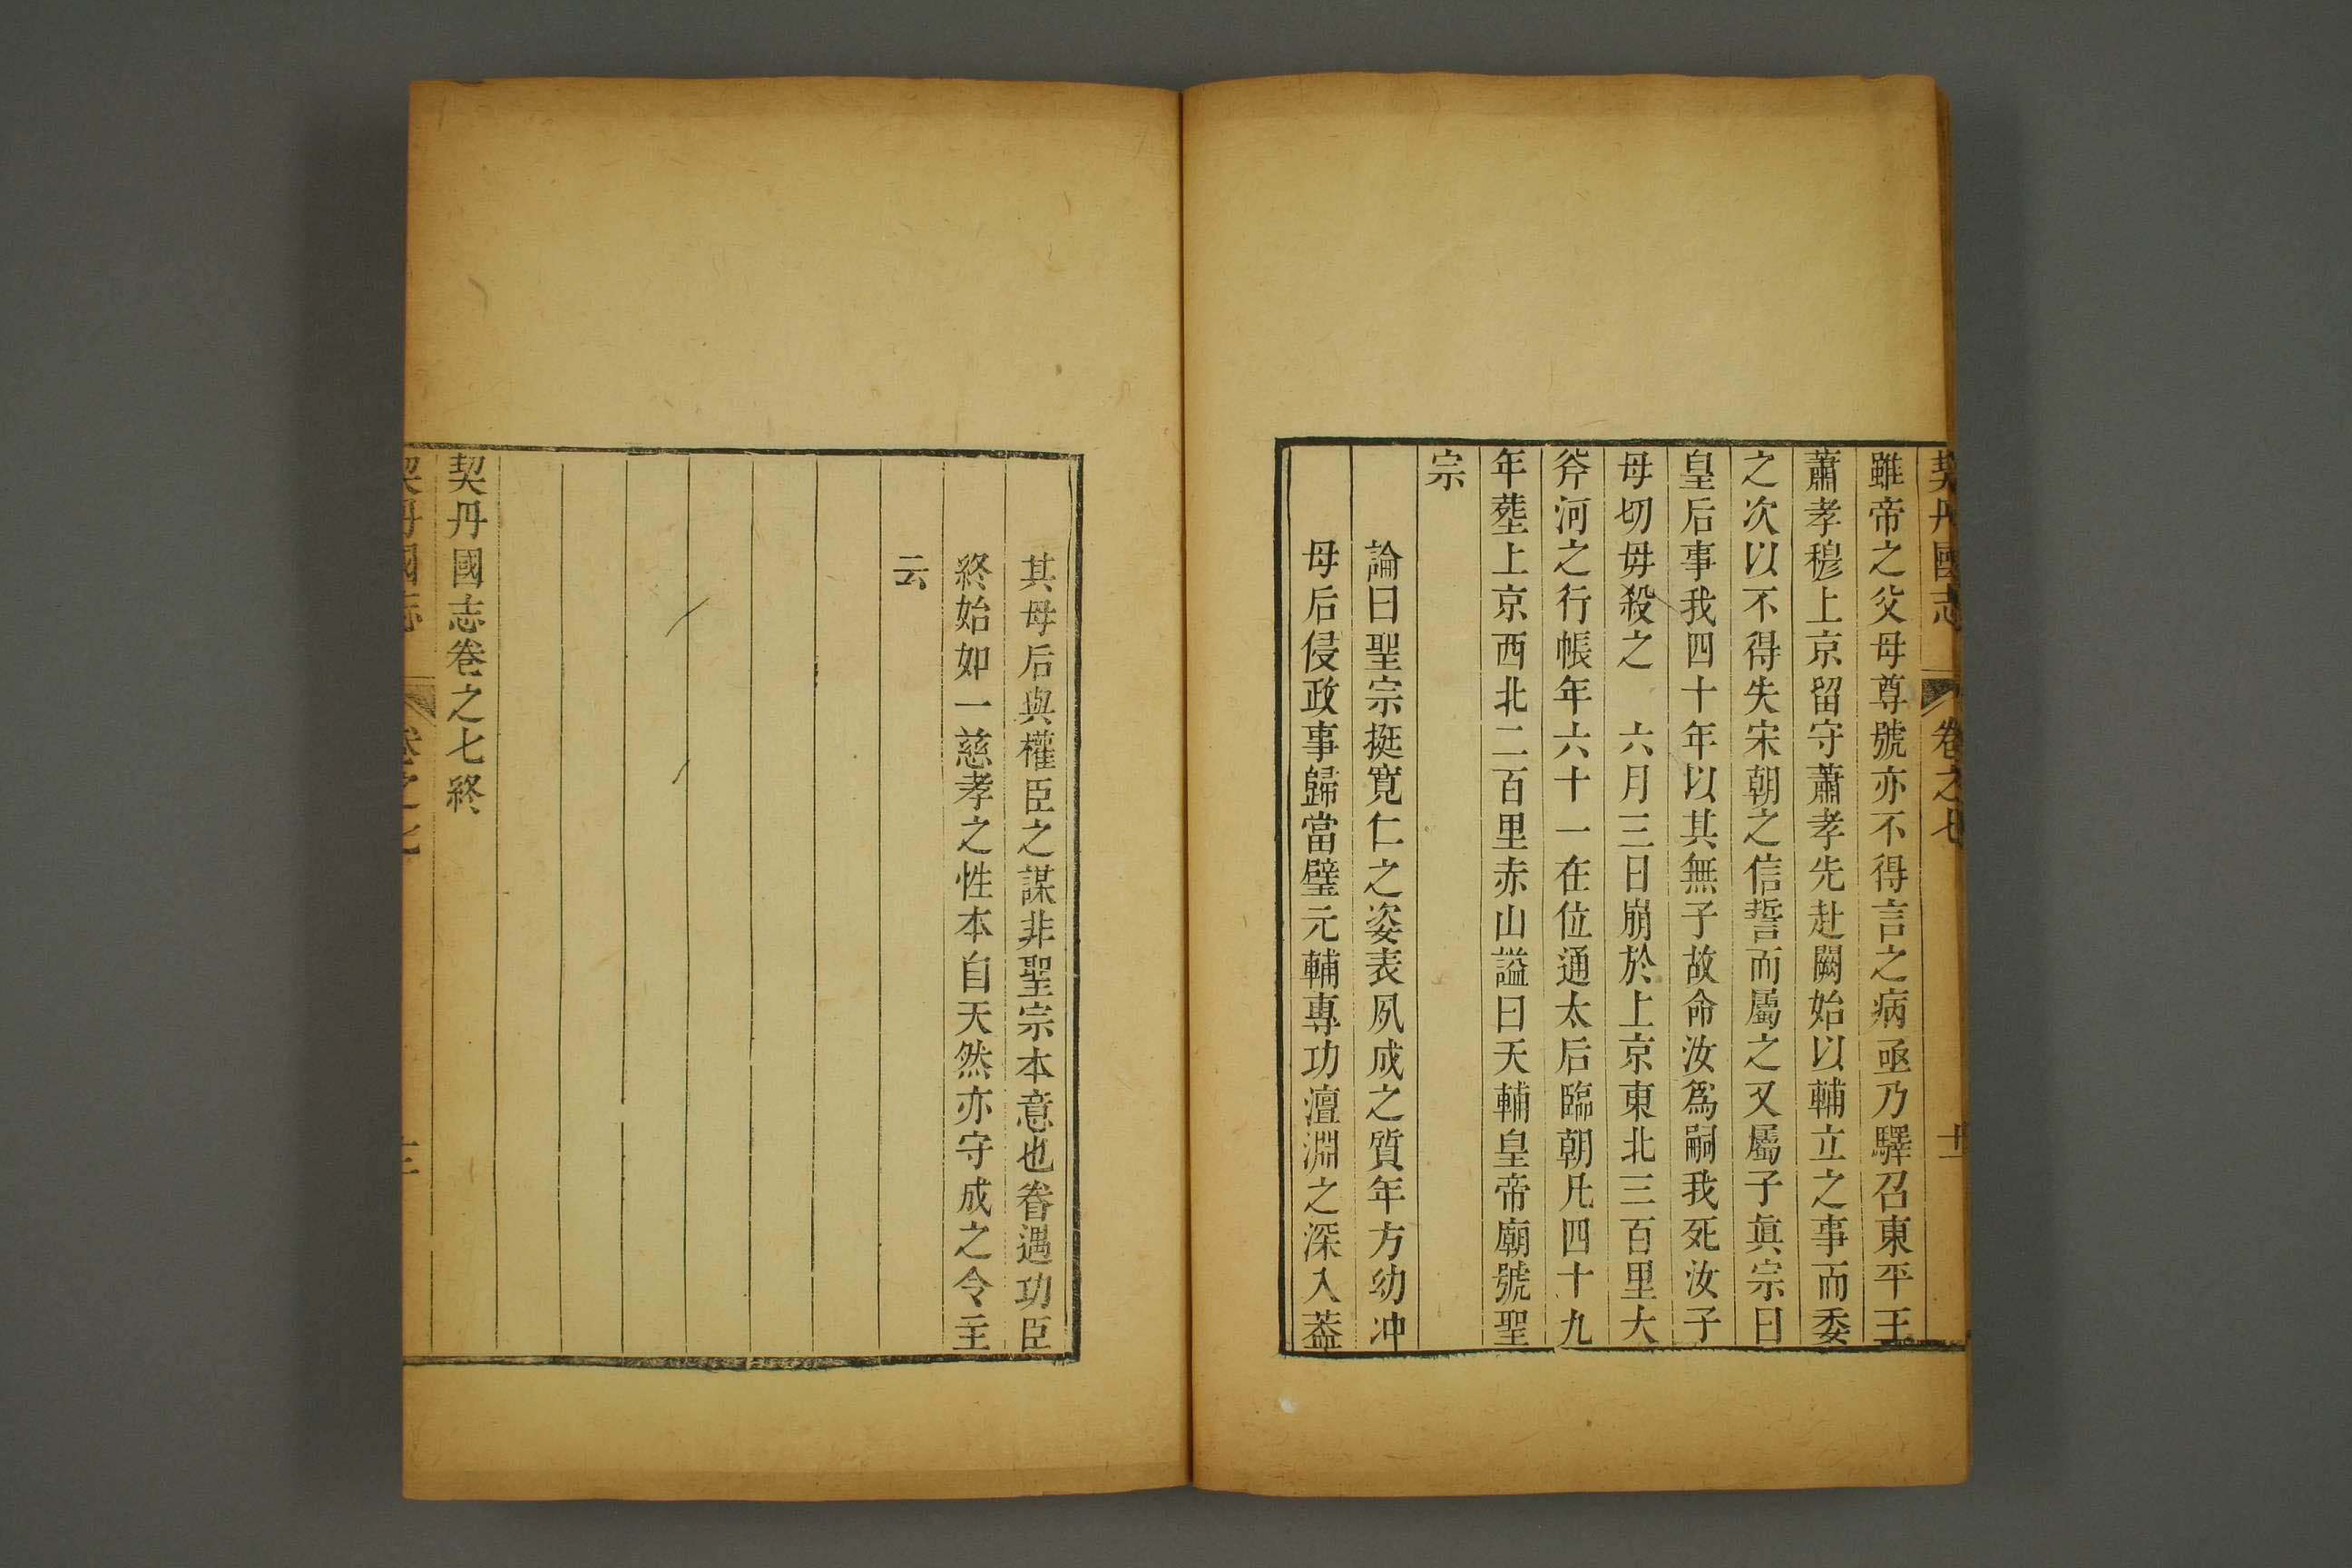 契丹國志 卷之七
雖帝之父母尊號亦不得言之病亟乃驛召東平王
蕭孝穆上京留守蕭孝先赴闕始以輔立之事而委
之次以不得失宋朝之信誓而屬之又屬子眞宗曰
皇后事我四十年以其無子故命汝爲嗣我死汝子
母切毋殺之 六月三日崩於上京東北三百里大
斧河之行帳年六十一在位通太后臨朝凡四十九
年葬上京西北二百里赤山謚曰天輔皇帝廟號聖
宗
論曰聖宗挺寬仁之姿表夙成之質年方幼冲
母后侵政事歸當璧元輔專功澶淵之深入蓋
其母后與權臣之謀非聖宗本意也眷遇功臣
終始如一慈孝之性本自天然亦守成之令主
云
契丹國志卷之七終
契丹國志 卷之七